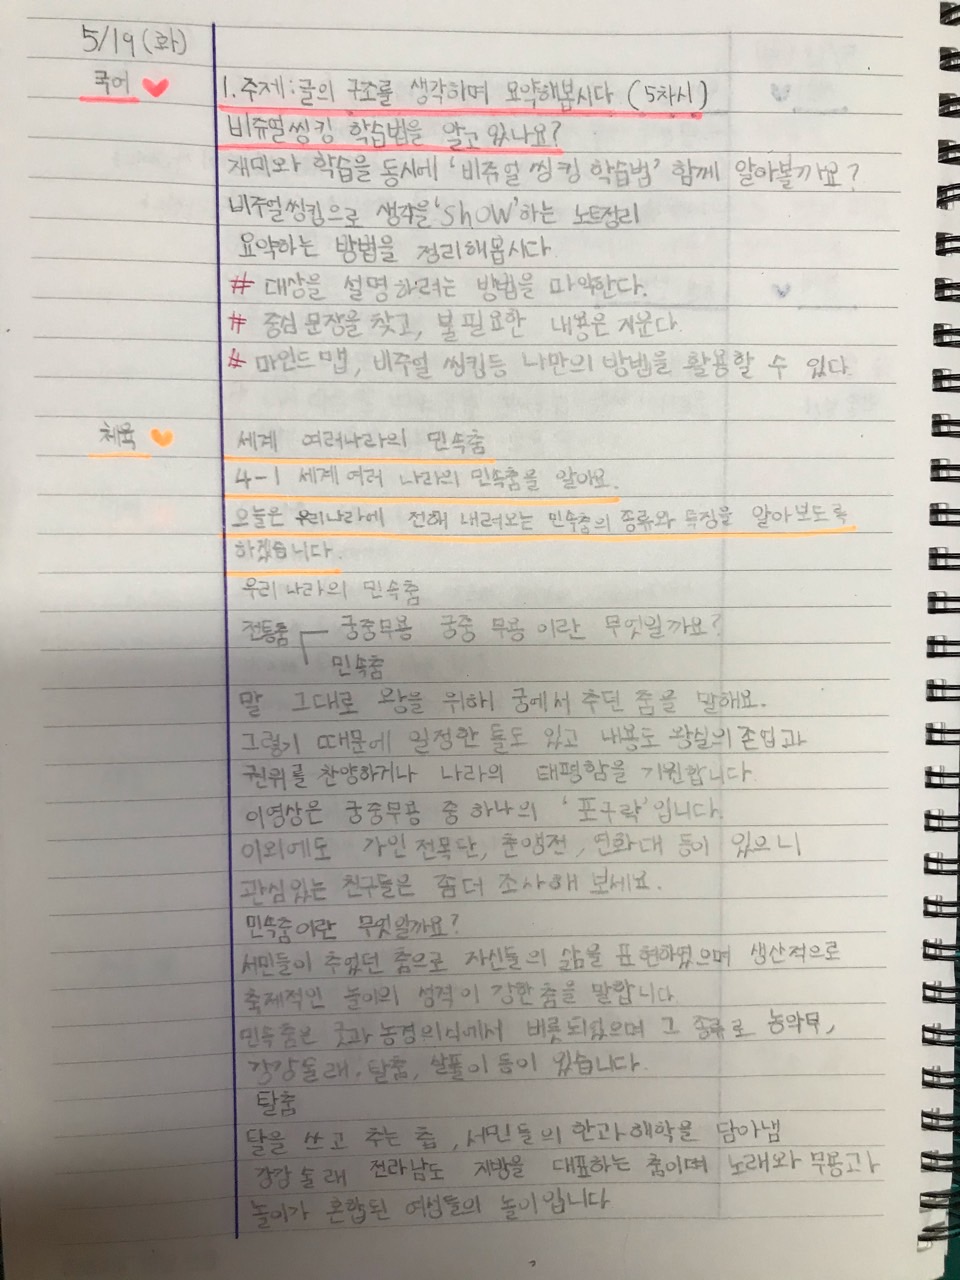 5/19(화)
국어 1. 주제:글의 구조를 생각하며 요약해봅시다 (5차시)
비쥬얼씽킹 학습법을 알고 있나요?
재미와 학습을 동시에 '비쥬얼 씽킹 학습법' 함께 알아볼까요?
비주얼씽킹으로 생각을 'show'하는 노트정리
요약하는 방법을 정리해봅시다.
# 대상을 설명하려는 방법을 파악한다.
# 중심 문장을 찾고, 불필요한 내용은 지운다.
# 마인드맵, 비주얼 씽킹등 나만의 방법을 활용할 수 있다.
체육 세계 여러나라의 민속춤
4-1 세계여러 나라의 민속춤을 알아요.
오늘은 우리나라에 전해 내려오는 민속춤의 종류와 특징을 알아보도록
하겠습니다.
우리나라의 민속춤
전통춤 궁중무용 궁중 무용이란 무엇일까요?
민속춤
말 그대로 왕을 위해 궁에서 추던 춤을 말해요.
그렇기 때문에 일정한 틀도 있고 내용도 왕실의 존엄과
권위를 찬양하거나 나라의 태평함을 기원합니다.
이영상은 궁중무용 중 하나의 '포구락'입니다.
이외에도 가인전목단, 춘앵전, 연화대 등이 있으니
관심있는 친구들은 좀더 조사해 보세요.
민속춤이란 무엇일까요?
서민들이 추었던 춤으로 자신들의 삶을 표현하였으며 생산적으로
축제적인 놀이의 성격이 강한춤을 말합니다.
민속춤은 굿과 농경의식에서 비롯되었으며 그 종류로 농악무,
강강술래, 탈춤, 살풀이 등이 있습니다.
탈춤
탈을 쓰고 추는 춤, 서민들의 한과해학을 담아냄
강강술래 전라남도 지방을 대표하는 춤이며 노래와 무용과
놀이가 혼합된 여성들의 놀이입니다